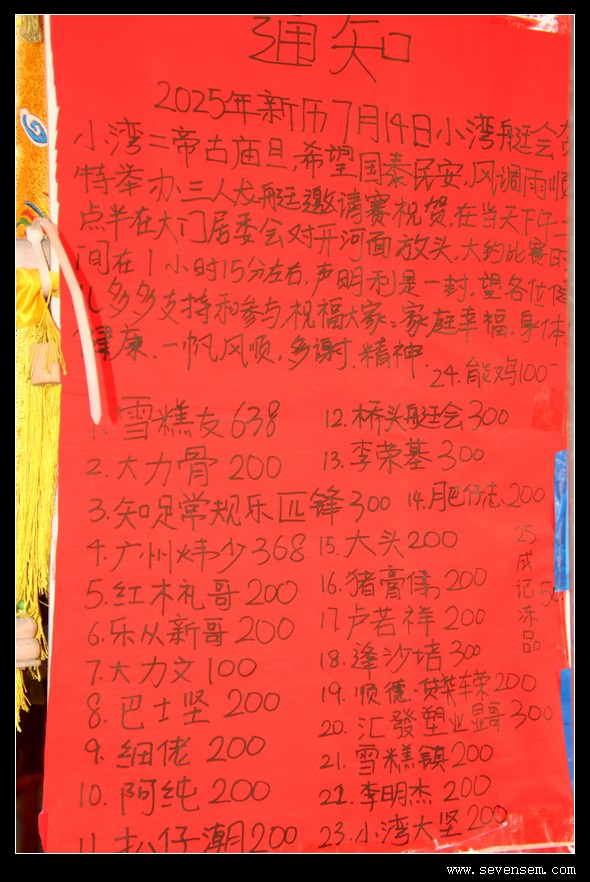 通知
2025年新历7月14日小湾艇会
小湾二帝古庙旦,希望国泰民安,风调雨顺
特举办三人龙艇邀请赛祝贺,在当天下午
点半在大门居委会对开河面放头,大约比赛时
间在1小时15分左右,声明利是一封,望各位
多多支持和参与,祝福大家:家庭幸福.身体
健康.一帆风顺,多谢.精神.
24.能鸡100
1.雪糕友638
2.大力骨200
3.知足常规乐匹锋300
4.广州炜少368
5.红木礼哥200
6.乐从新哥200
7.大力文100
8.巴士坚200
9.细佬200
10.阿纯200
11.扒仔潮200
12.桥头艇会300
13.李荣基300
14.肥仔志200
15.大头200
16.猪膏伟200
17.卢若祥200
18.逢沙培300
19.顺德·货车荣200
20.汇發塑业显哥300
21.雪糕镇200
22.李明杰200
23.小湾大坚200
25.成记冻品
www.sevensem.com